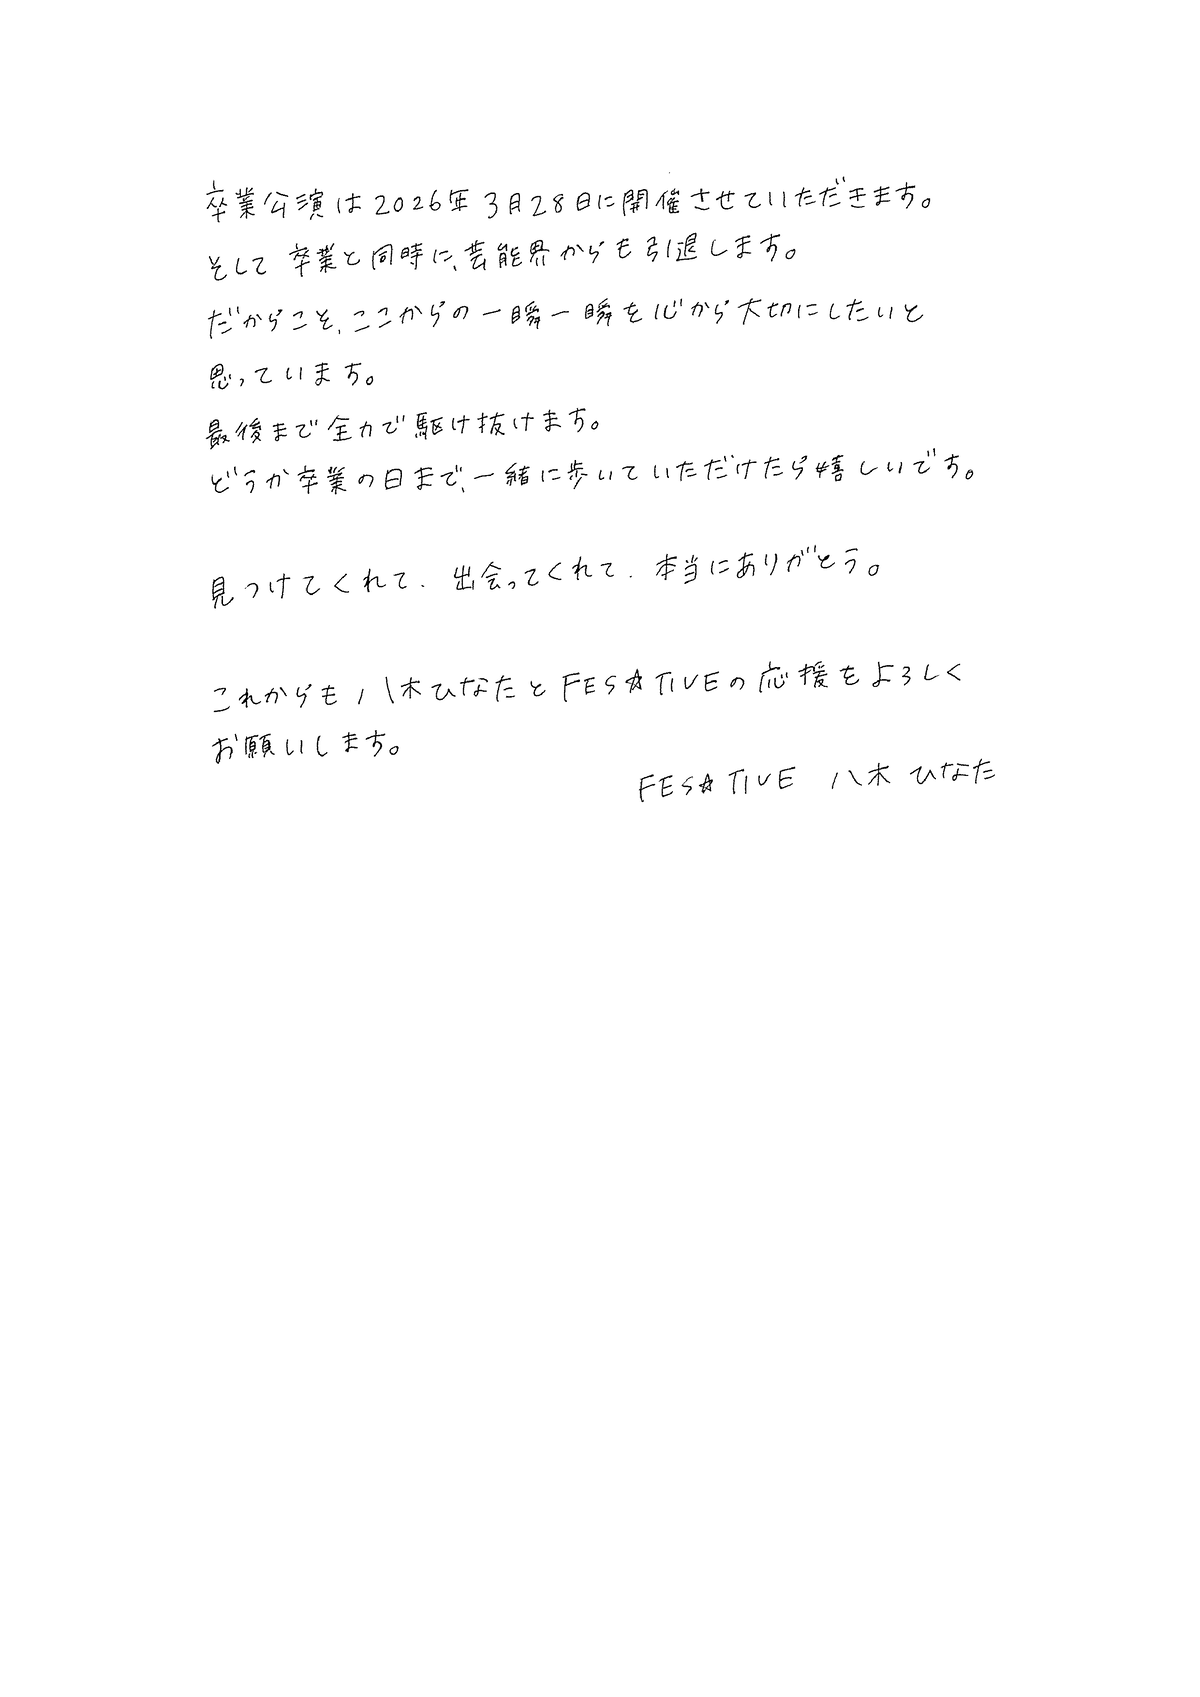 卒業公演は2026年3月28日に開催させていただきます。
そして 卒業と同時に、芸能界からも引退します。
だからこそ、ここからの一瞬一瞬を心から大切にしたいと
思っています。
最後まで全力で駆け抜けます。
どうか卒業の日まで、一緒に歩いていただけたら嬉しいです。
見つけてくれて、出会ってくれて、本当にありがとう。
これからも八木ひなたとFES☆TIVEの応援をよろしく
お願いします。
FES☆TIVE 八木 ひなた